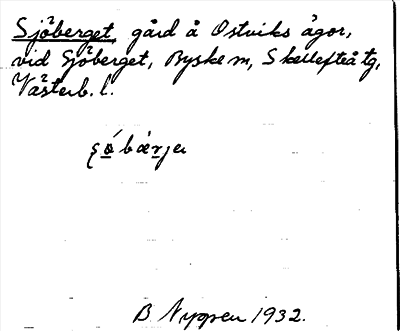 Sjöberget, gård å Ostviks ägor,
vid Sjöberget, Byske m, Skellefteå tg,
Västerb. l.
B Nygren 1932.